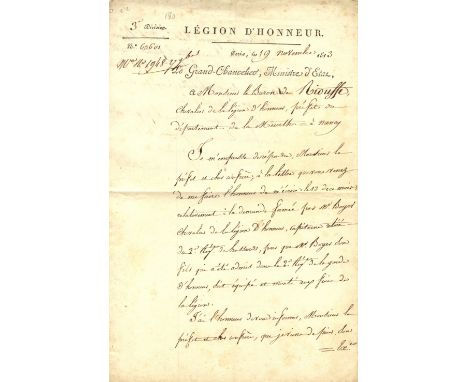 180
3e Division.
LÉGION D'HONNEUR.
No. 69601
Paris, le 19 novembre 1813
Le Grand-Chancelier, Ministre d'Etat,
à Monsieur le Baron de Riouffe,
chevalier de la légion d'honneur, préfet du
département de la Meurthe = à nancy
Je m'empresse de répondre, Monsieur le
préfet et cher confrère, à la lettre que vous venez
de me faire l'honneur de m'écrire le 12 de ce mois
relativement à la demande formée par Mr Boyer
chevalier de la légion d'honneur, capitaine
du 2e Régt de hussards, pour que Mr Boyer son
fils qui a été admis dans le 2e Régt de la garde
d'honneur, soit équipé et monté aux frais de
la légion.
J'ai l'honneur de vous informer, Monsieur le
préfet et cher confrère, que je viens de faire